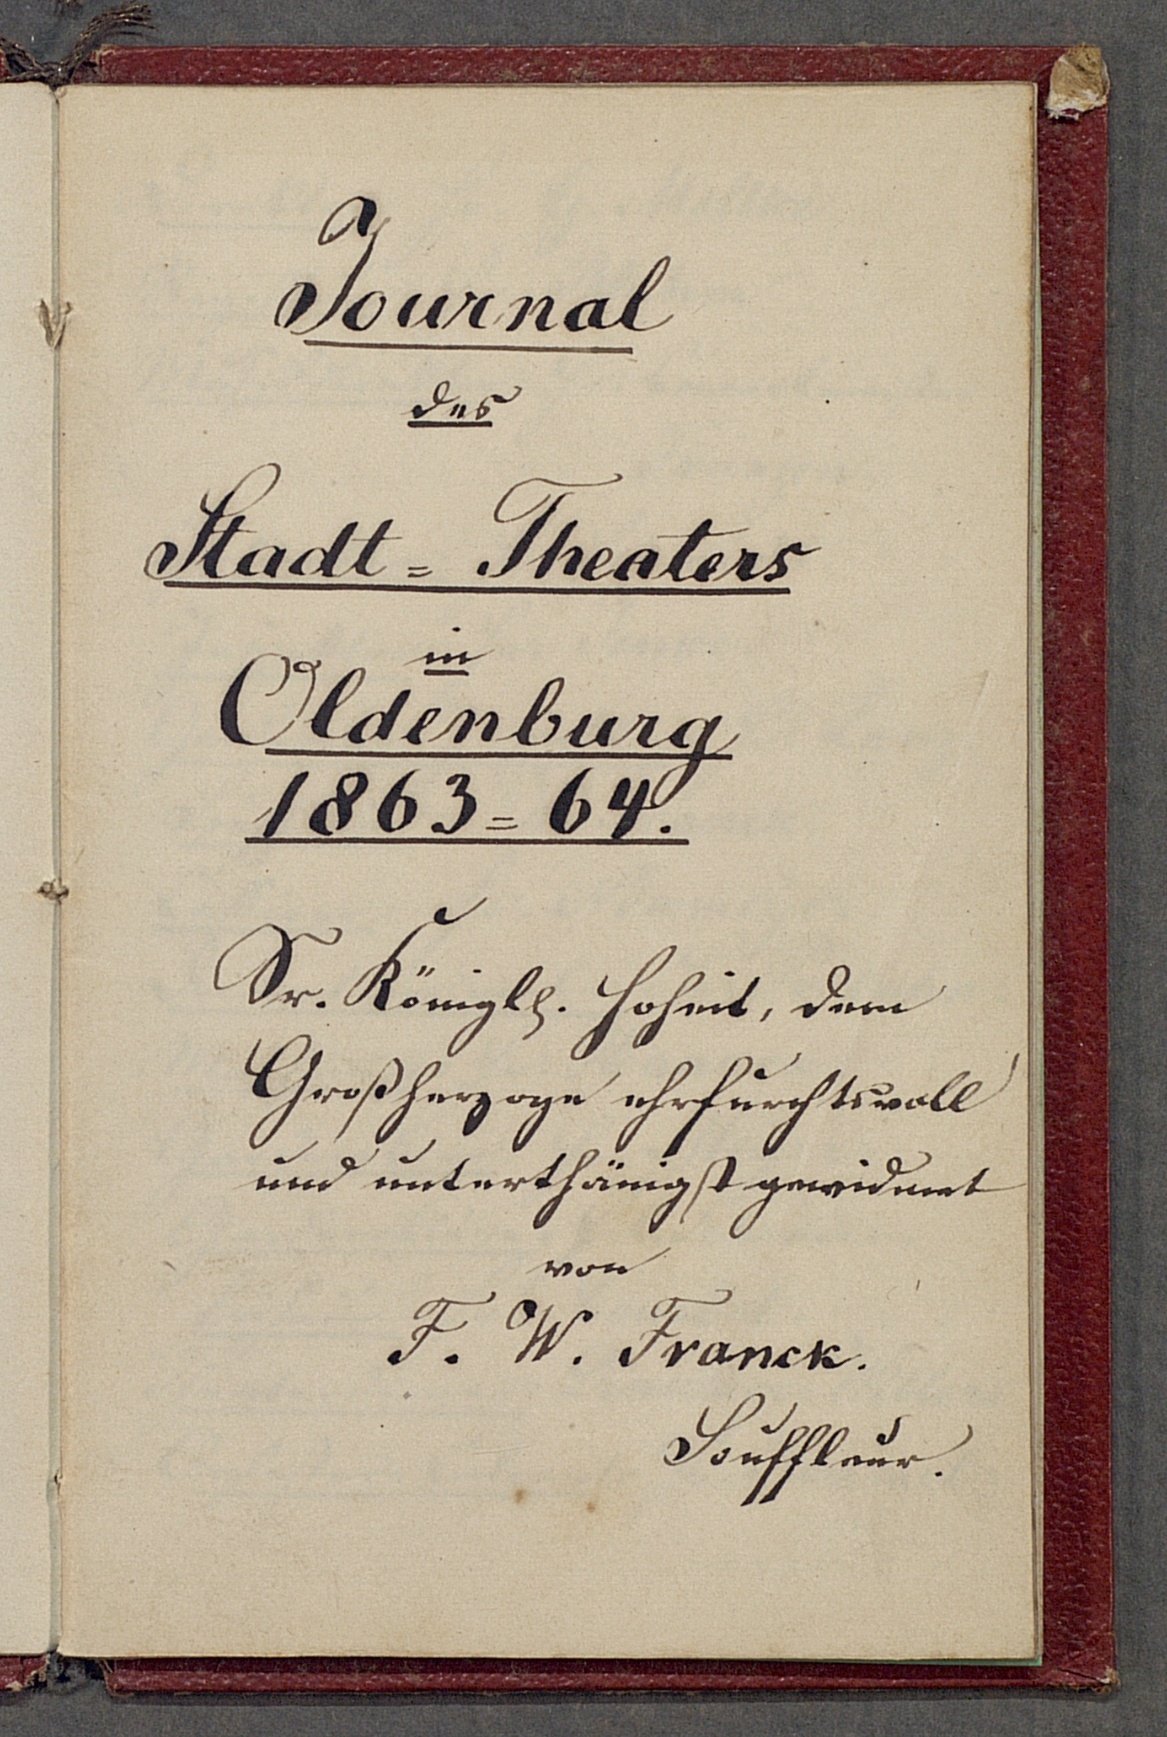 Journal
des
Stadt=Theaters
in
Oldenburg
1863=64.
Sr. Königlh. Hoheit, dem
Großherzoge ehrfurchtsvoll
und unterthänigst gewidmet
von
F. W. Franck.
Souffleur.